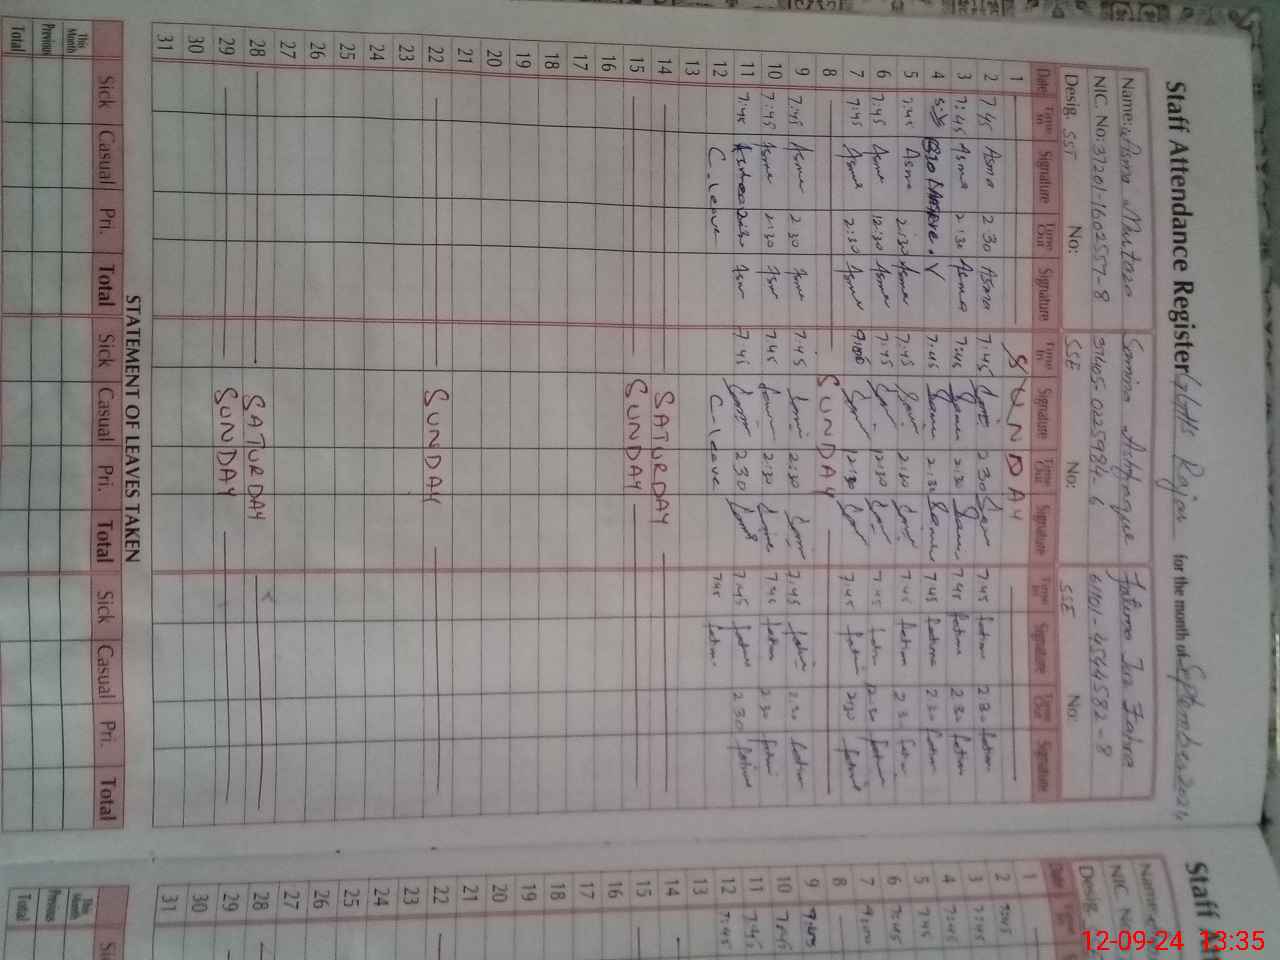 Staff Attendance Register GGHS Rajar for the month of September 2024
Name: Asma Murtaza
NIC. No: 37201-1602557-8
Desig. SST No:
Samina Ashfaque
37405-0225984-6
SSE No:
Fatima Tuz Zahra
61101-4544582-8
SSE No:
Date Time In Signature Time Out Signature Time In Signature Time Out Signature Time In Signature Time Out Signature
1 SUNDAY
2 7:45 Asma 2:30 Asma 7:45 2:30 7:45 fatima 2:30 fatima
3 7:45 Asma 2:30 Asma 7:45 2:30 7:45 fatima 2:30 fatima
4 7:45 2:30 7:45 fatima 2:30 fatima
5 7:45 Asma 2:30 Asma 7:45 2:30 7:45 fatima 2:30
6 7:45 Asma 12:30 Asma 7:45 12:30 7:45 12:30 fatima
7 7:45 Asma 2:30 Asma 7:45 fatima 2:30 fatima
8 SUNDAY
9 7:45 Asma 2:30 Asma 7:45 2:30 7:45 fatima 2:30 fatima
10 7:45 Asma 2:30 7:45 2:30 7:45 fatima 2:30 fatima
11 7:45 2:30 7:45 2:30 7:45 fatima 2:30 fatima
12 C-leave C-leave 7:45 fatima
13
14 SATURDAY
15 SUNDAY
16
17
18
19
20
21
22 SUNDAY
23
24
25
26
27
28 SATURDAY
29 SUNDAY
30
31
STATEMENT OF LEAVES TAKEN
Sick Casual Pri. Total Sick Casual Pri. Total Sick Casual Pri. Total
This Month
Previous
Total
Staff At
Name:
NIC. No
Desig.
Date
1
2 7:45
3 7:45
4 7:45
5 7:45
6 7:45
7 9:00
8
9 7:45
10 7:45
11 7:45
12 7:45
13
14
15
16
17
18
19
20
21
22
23
24
25
26
27
28
29
30
31
This Month
Previous
Total
12-09-24 13:35